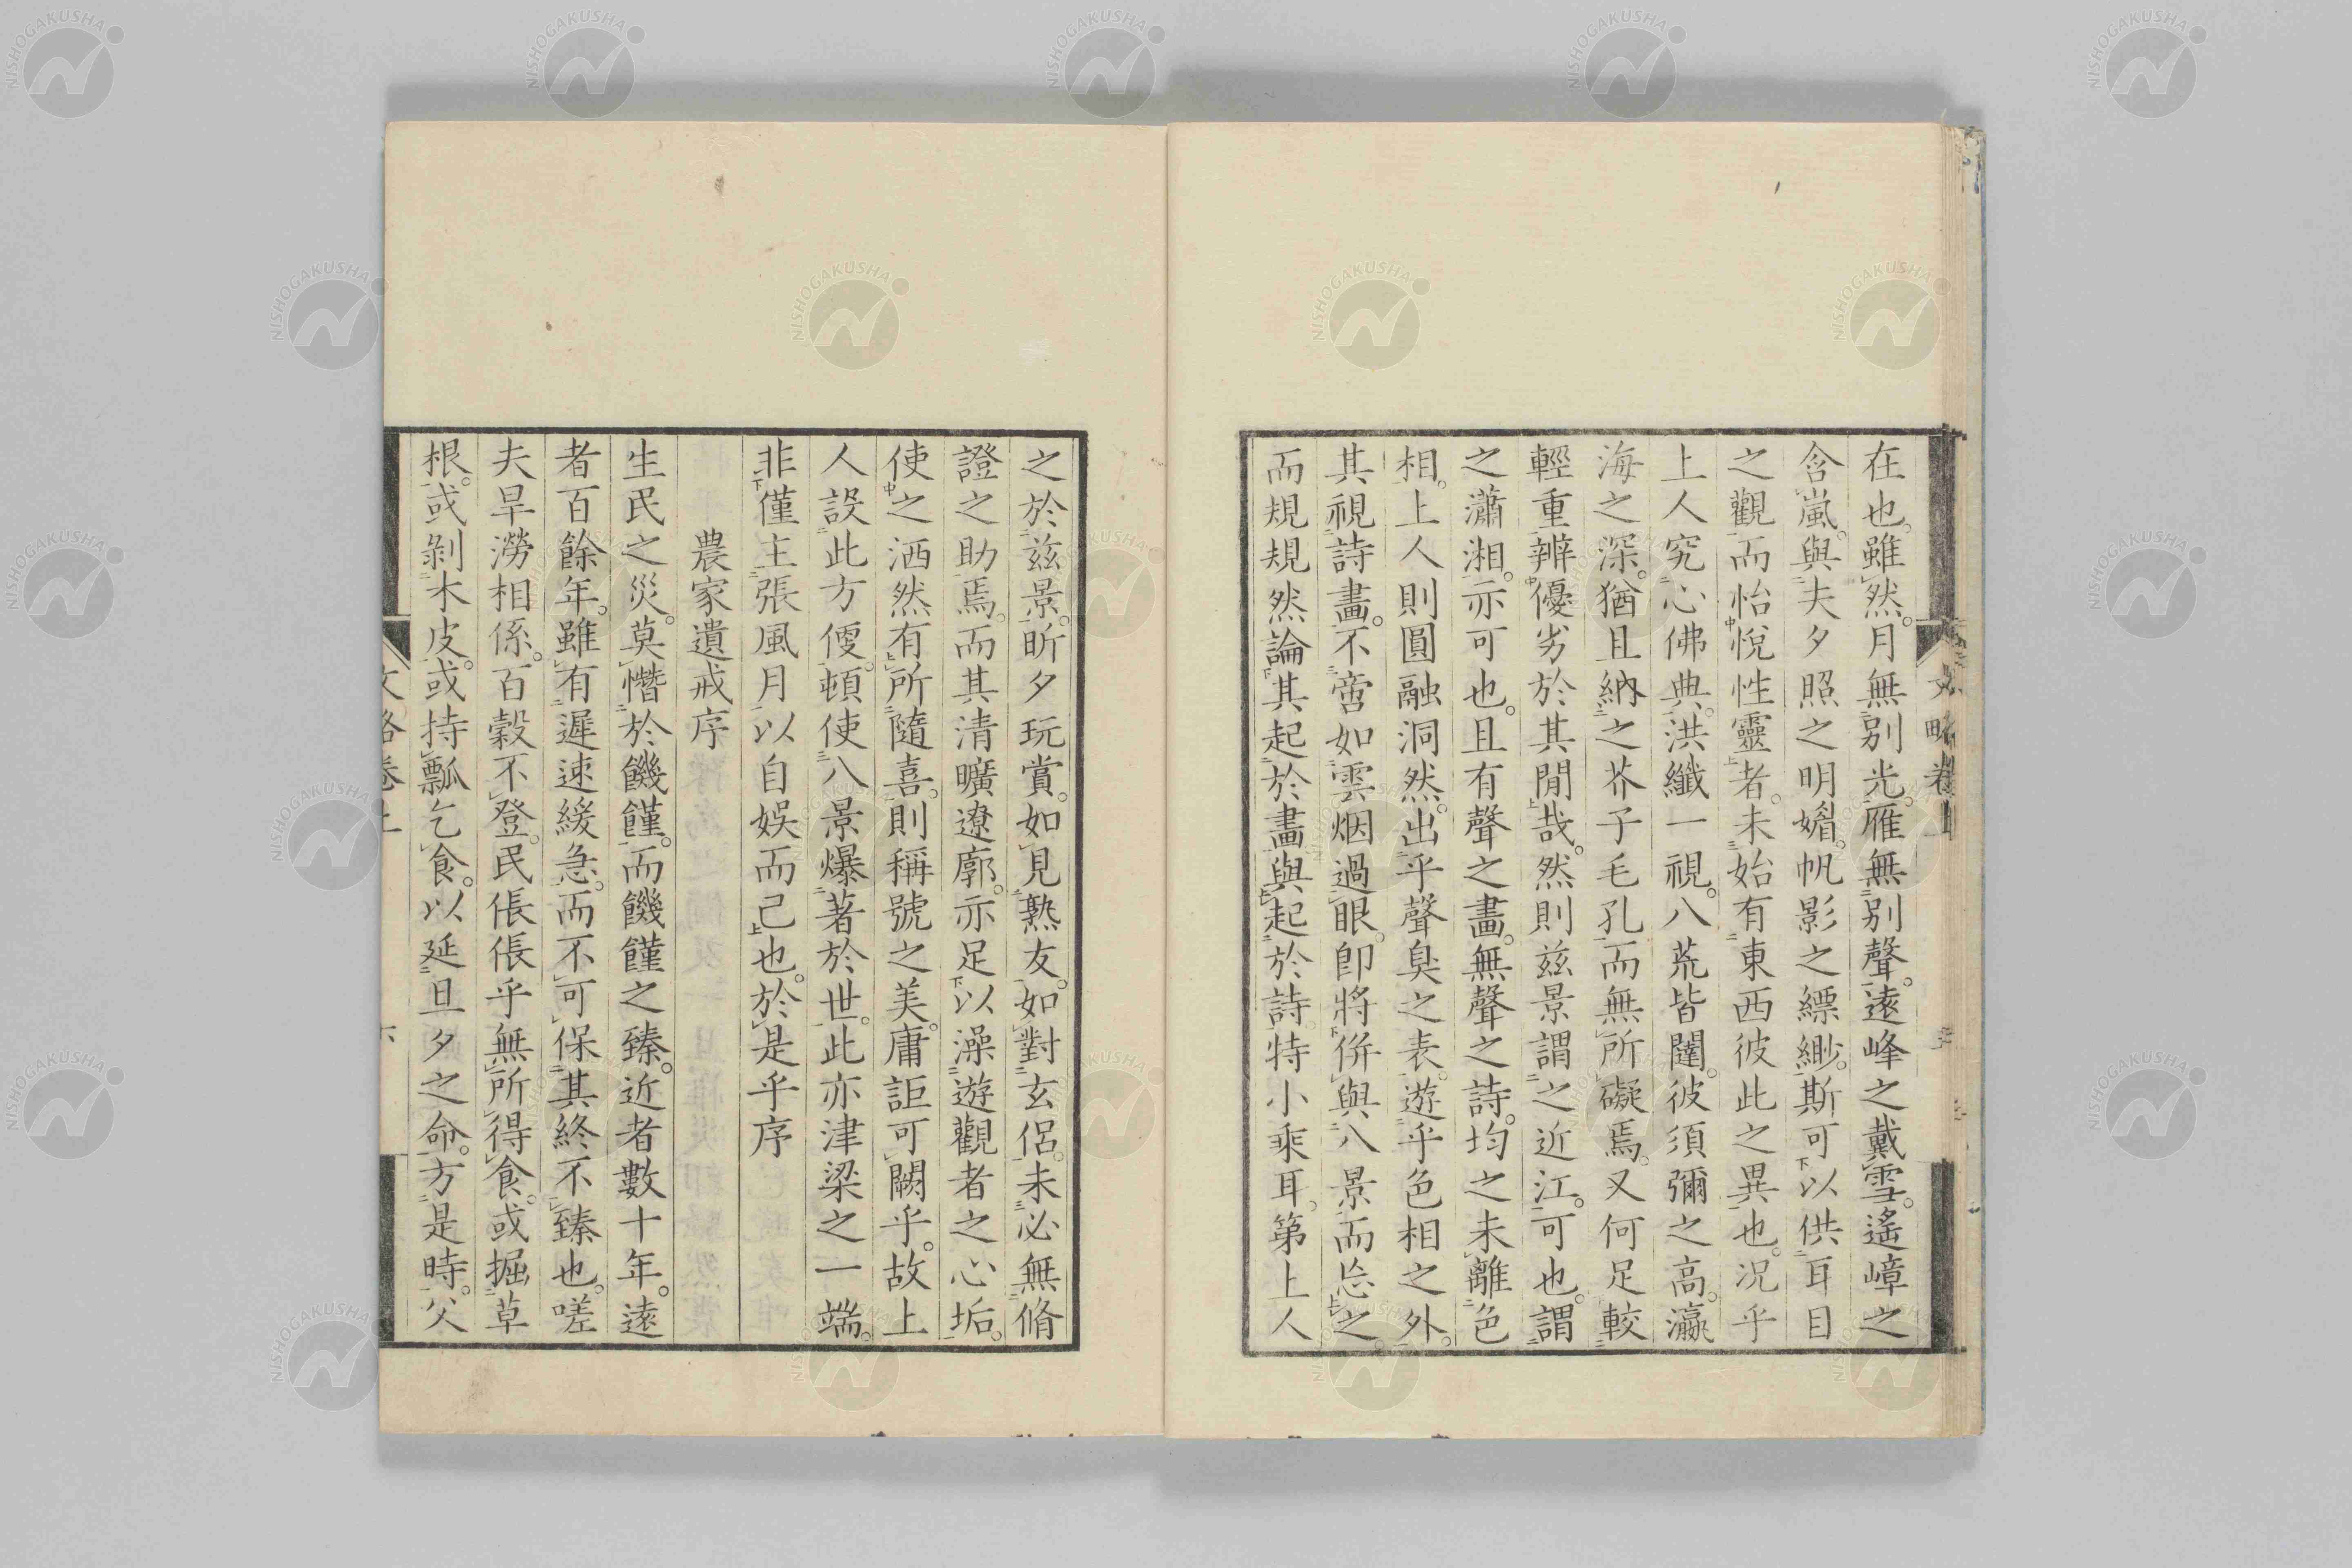 在也。雖然。月無別光。雁無別聲。遠峰之戴雪。遙嶂之
含嵐。與夫夕照之明媚。帆影之縹緲。斯可以供耳目
之觀。而怡悅性靈者。未始有東西彼此之異也。況乎
上人究心佛典。洪纖一視。八荒皆闥。彼須彌之高。瀛
海之深。猶且納之芥子毛孔。而無所礙焉。又何足較
輕重辨優劣於其間哉。然則茲景謂之近江。可也。謂
之瀟湘。亦可也。且有聲之畫。無聲之詩。均之未離色
相。上人則圓融洞然。出乎聲臭之表。遊乎色相之外。
其視詩畫。不啻如雲烟過眼。即將併與八景而忘之。
而規規然論其起於畫與起於詩特小乘耳。第上人
文略卷上
之於茲景。昕夕玩賞。如見熟友。如對玄侶。未必無脩
證之助焉。而其清曠遼廓。亦足以澡遊觀者之心垢。
使之洒然有所隨喜。則稱號之美。庸詎可闕乎。故上
人設此方便。頓使八景爆著於世。此亦津梁之一端。
非僅主張風月以自娛而已也。於是乎序
農家遺戒序
生民之災。莫憯於饑饉。而饑饉之臻。近者數十年。遠
者百餘年。雖有遲速緩急。而不可保其終不臻也。嗟
夫旱澇相係。百穀不登。民倀倀乎無所得食。或掘草
根。或剝木皮。或持瓢乞食。以延旦夕之命。方是時。父
文略卷上
六
NISHOGAKUSHA